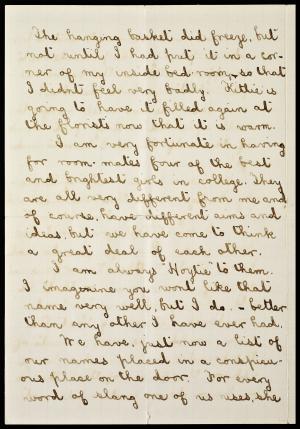 The hanging basket did freeze, but
not until I had put it in a cor-
ner of my inside bed-room, so that
I didnt feel very badly. Kittie is
going to have it filled again at
the florists now that it is warm.
I am very fortunate in having
for room-mates four of the best
and brightest girls in college. They
are all very different from me and
of course, have different aims and
ideas, but we have come to think
a great deal of each other.
I am always "Hoytie" to them.
I imagine you wont like that
name very well, but I do, - better
than any other I have ever had.
We have, just now a list of
our names placed in a conspicu-
ous place on the door. For every
word of slang one of us uses, she